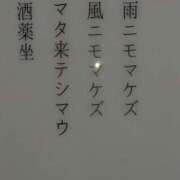 雨ニモマケズ
風ニモマケズ
マタ来テシマウ
酒薬坐